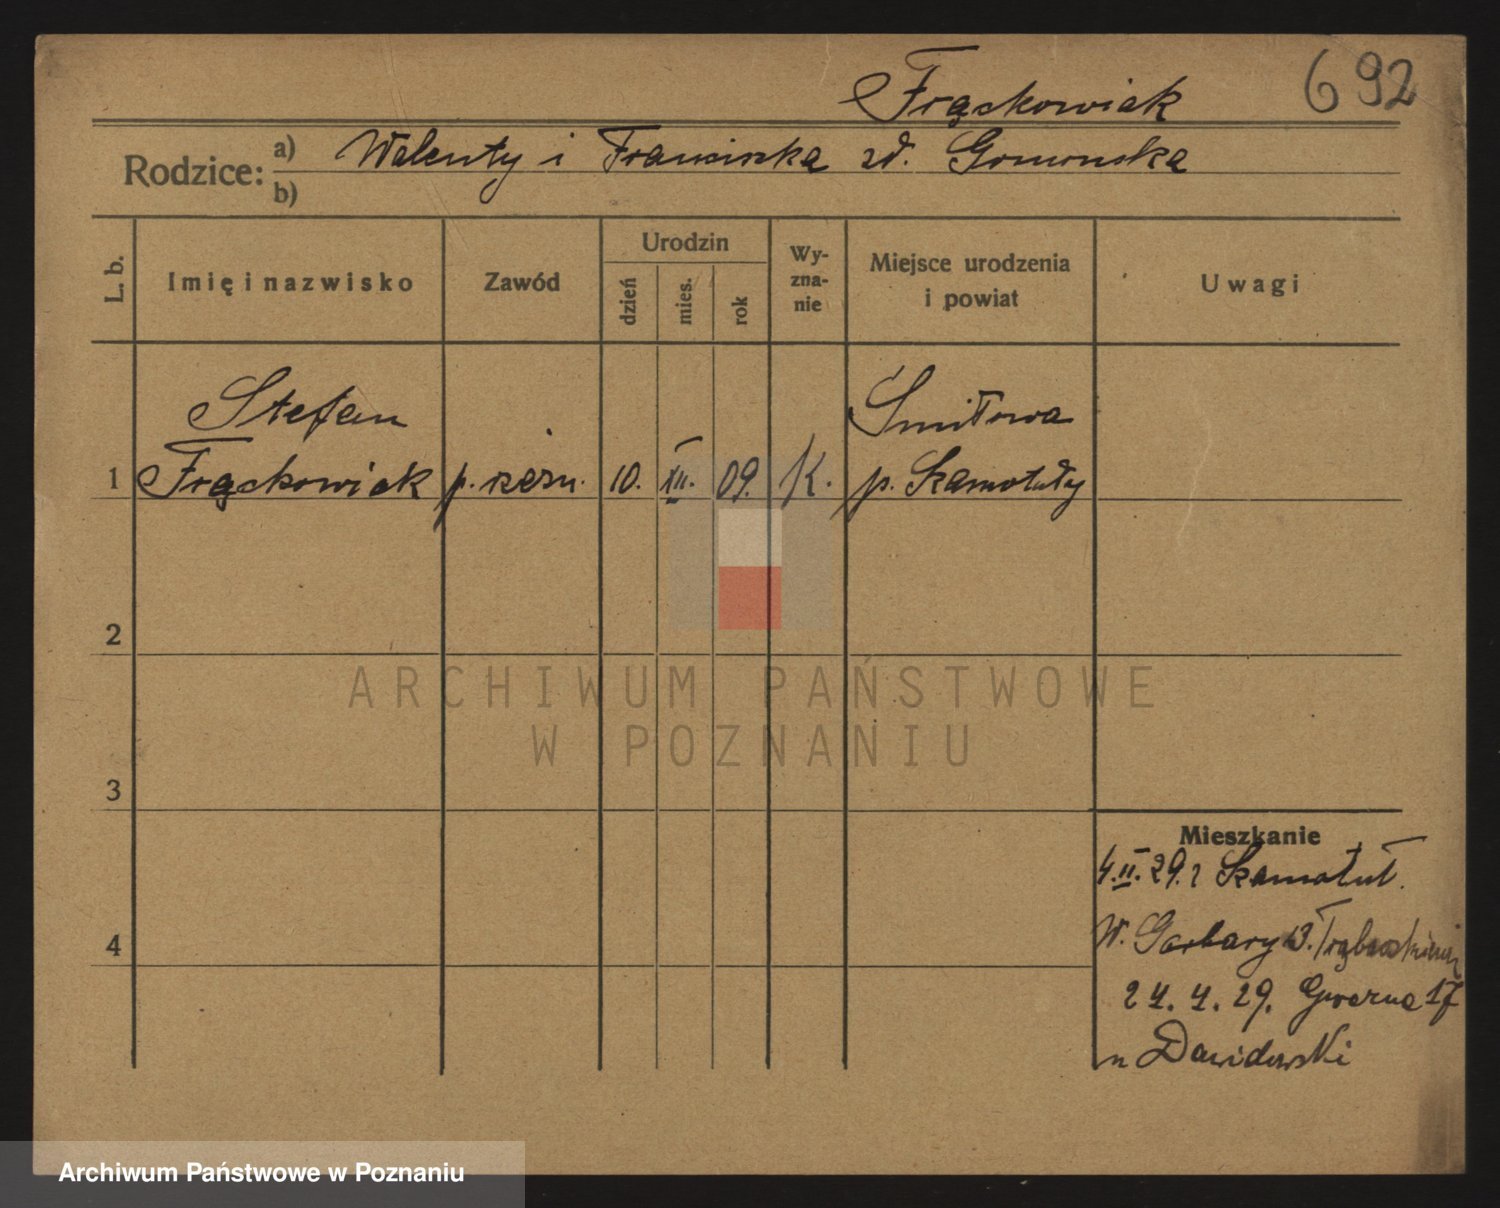 692
Frąckowiak
Rodzice: a) Walenty i Franciszka zd. Gromonska
b)
L. b. Imię i nazwisko Zawód Urodzin dzień mies. rok Wyznanie Miejsce urodzenia i powiat Uwagi
Stefan Śmiłowa
1 Frąckowiak p. rzeźn. 10. XII. 09. K. p. Szamotuły
2
ARCHIWUM PAŃSTWOWE
W POZNANIU
3
Mieszkanie
4.II.29. z Szamotuł.
4 W. Garbary 13.
24. 4. 29. Gwarna 17
n Dawidowski
Archiwum Państwowe w Poznaniu